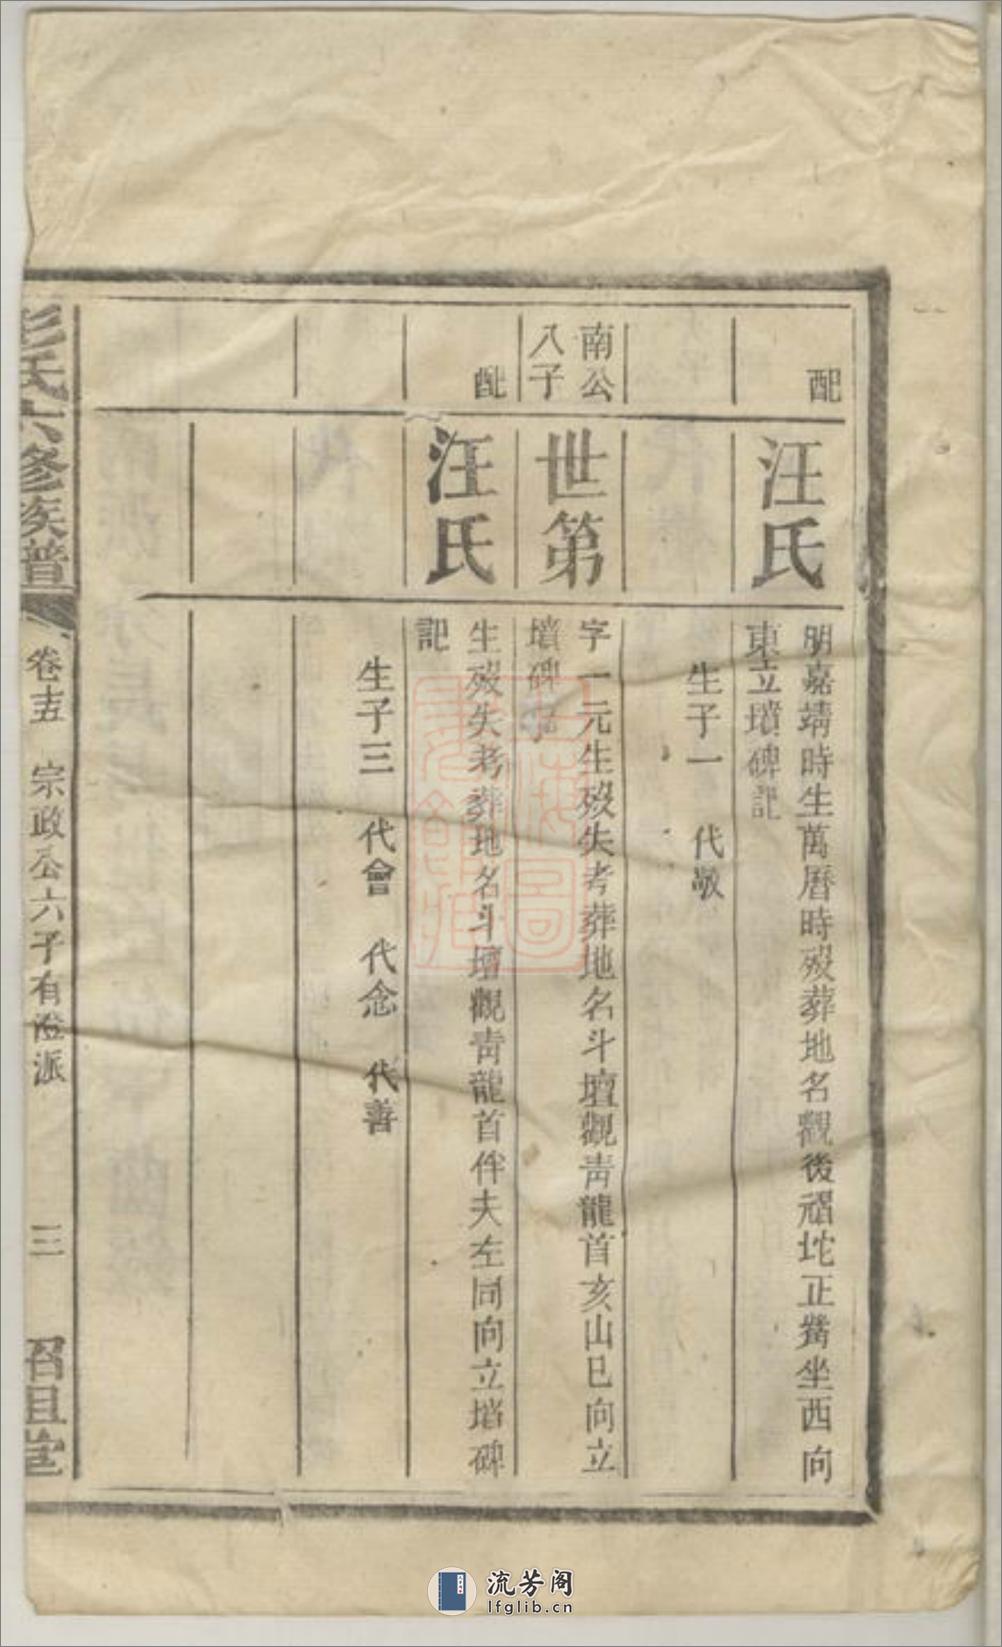 配
汪氏
明嘉靖時生萬曆時歿葬地名觀後禤坨正嶲坐西向
東立墳碑記
生子一　代敬
南公
八子
世第
字一元生歿失考葬地名斗壇觀青龍首亥山巳向立
墳碑
配
汪氏
生歿失考葬地名斗壇觀青龍首伴夫左同向立墳碑
記
生子三　代會　代念　代善
彭氏六修族譜
卷十五　宗政公六子有澄派
三
沼祖堂
流芳阁
lfglib.cn